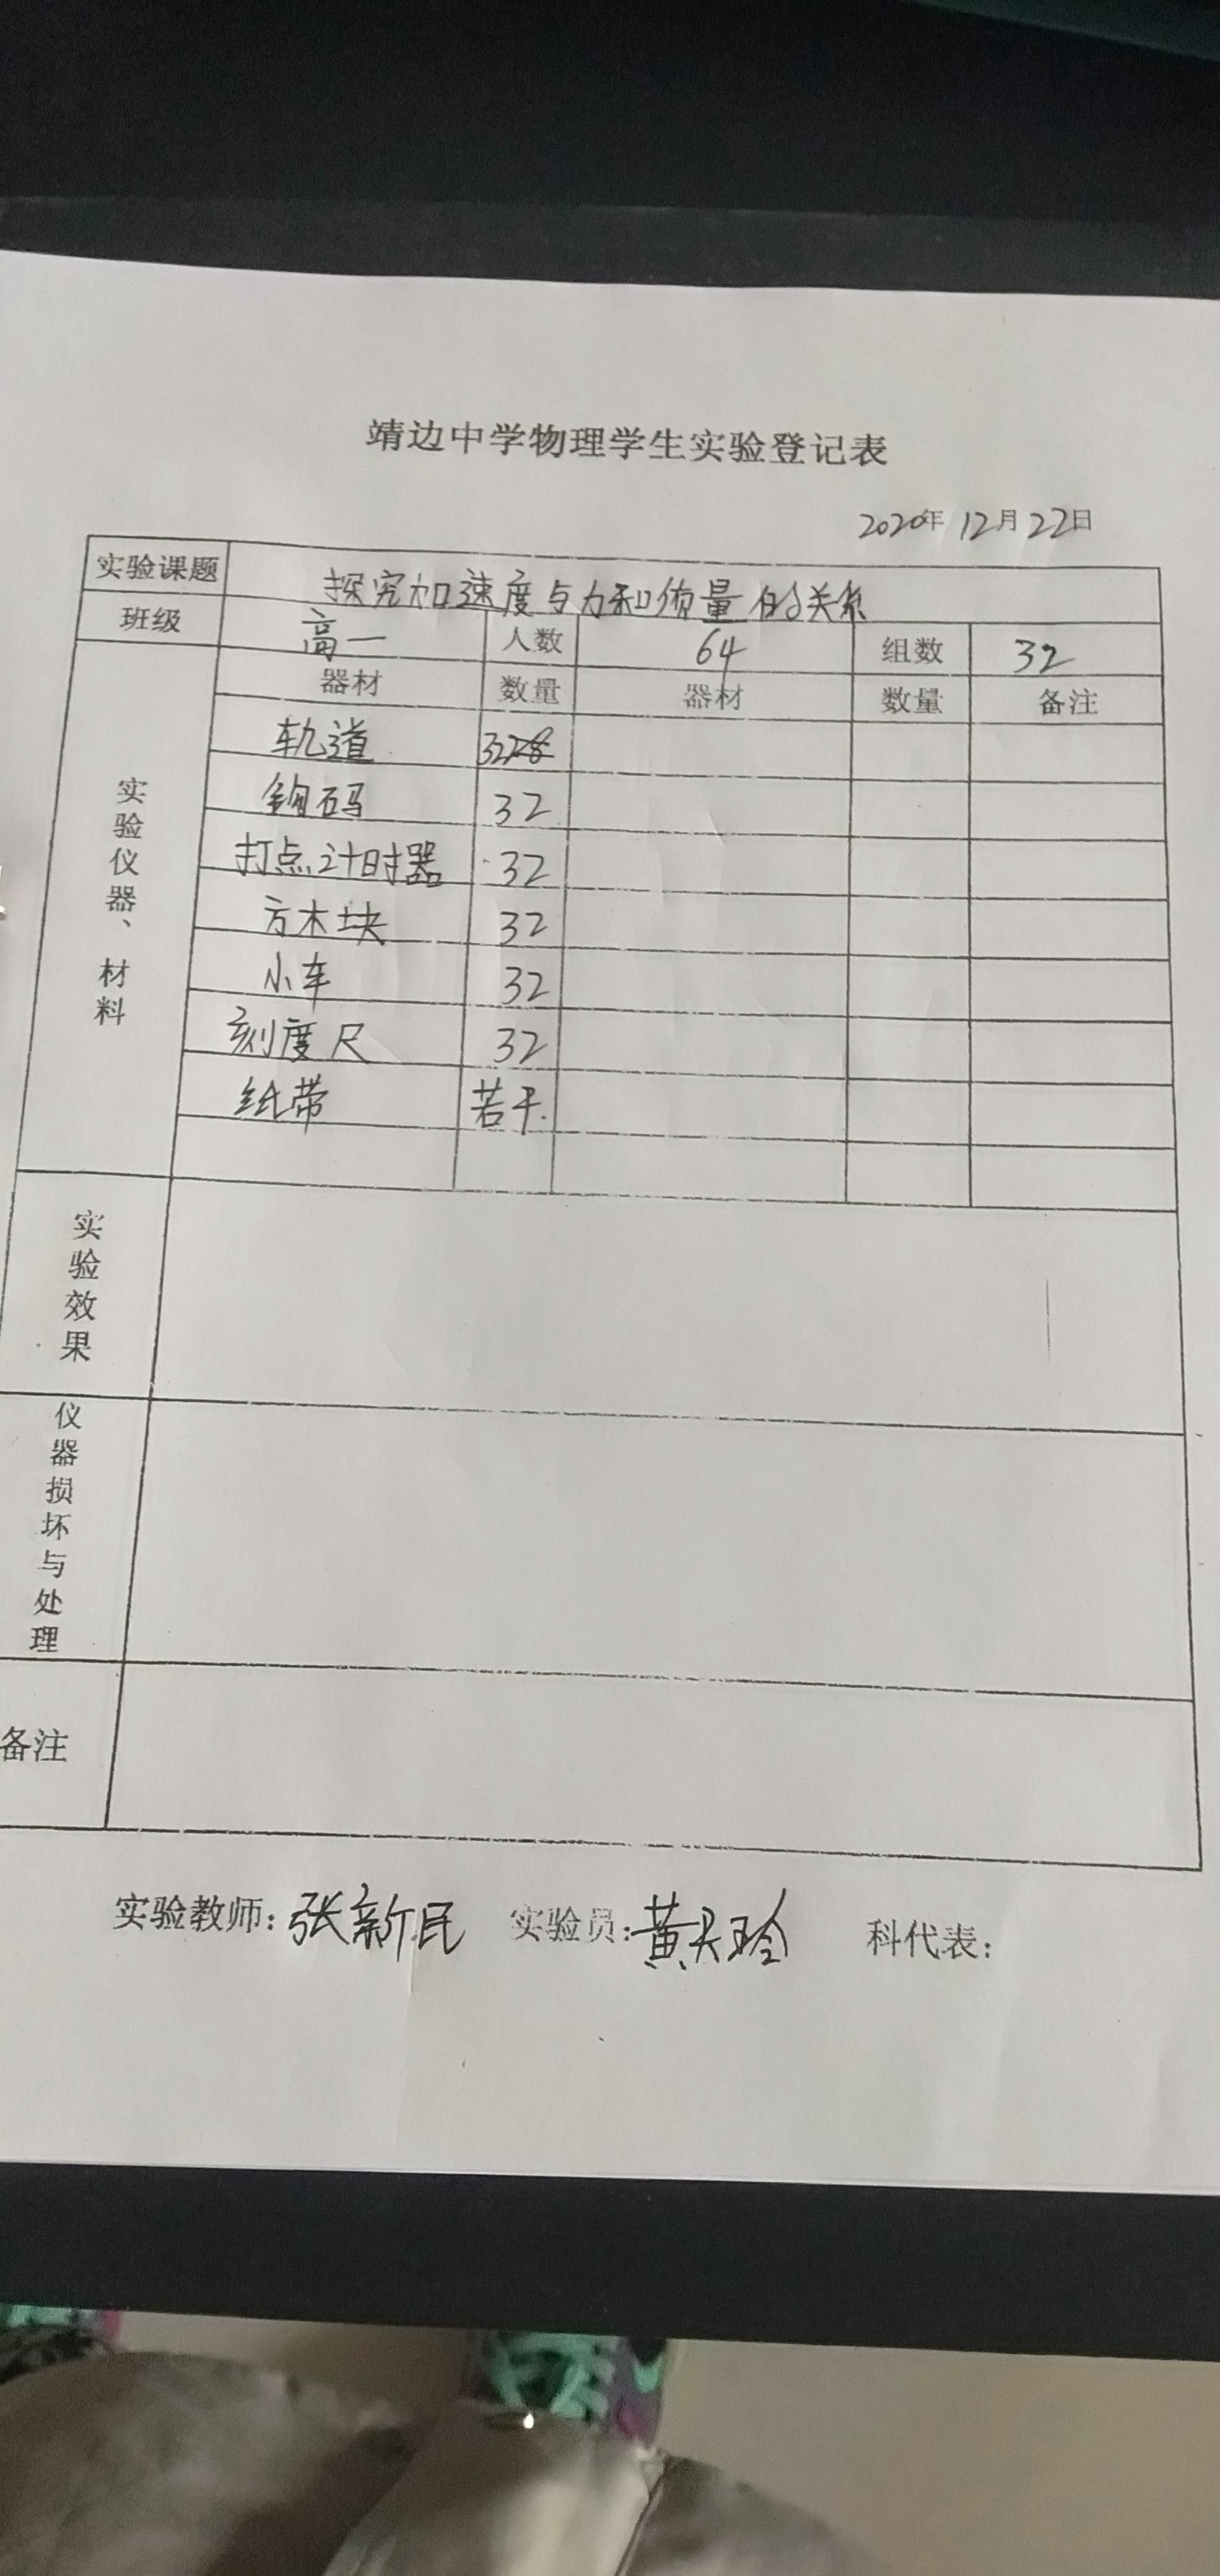 靖边中学物理学生实验登记表
2020年12月22日
实验课题 探究加速度与力和质量的关系
班级 高一 人数 64 组数 32
实验仪器、材料 器材 数量 器材 数量 备注
轨道 32
钩码 32
打点计时器 32
方木块 32
小车 32
刻度尺 32
纸带 若干.
实验效果
仪器损坏与处理
备注
实验教师: 张新民 实验员: 黄 玲 科代表: